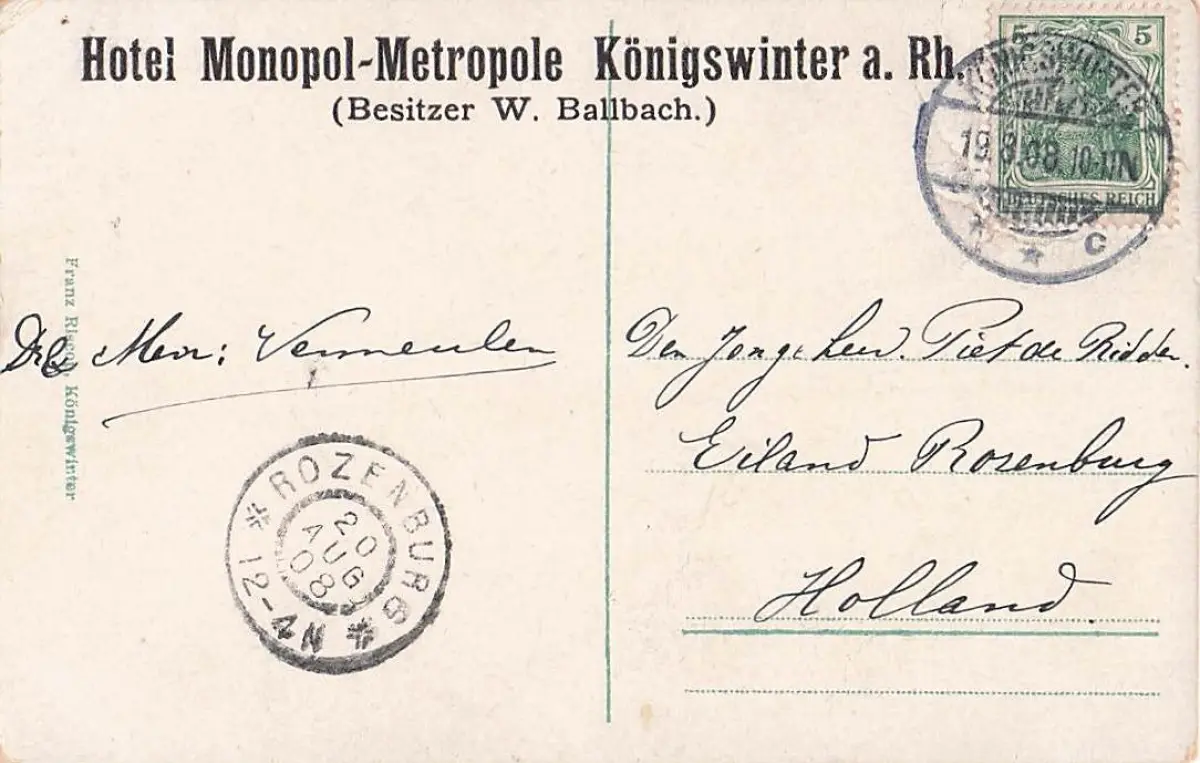 Hotel Monopol-Metropole Königswinter a. Rh.
(Besitzer W. Ballbach.)
5 5
DEUTSCHES REICH
KÖNIGSWINTER
19.8.08 10-11N
* * C
Franz Königswinter
Vermeulen
Den Jongeheer. Piet de Ridder.
Eiland Rosenburg
Holland
* ROZENBURG *
20
AUG
08
12-4N